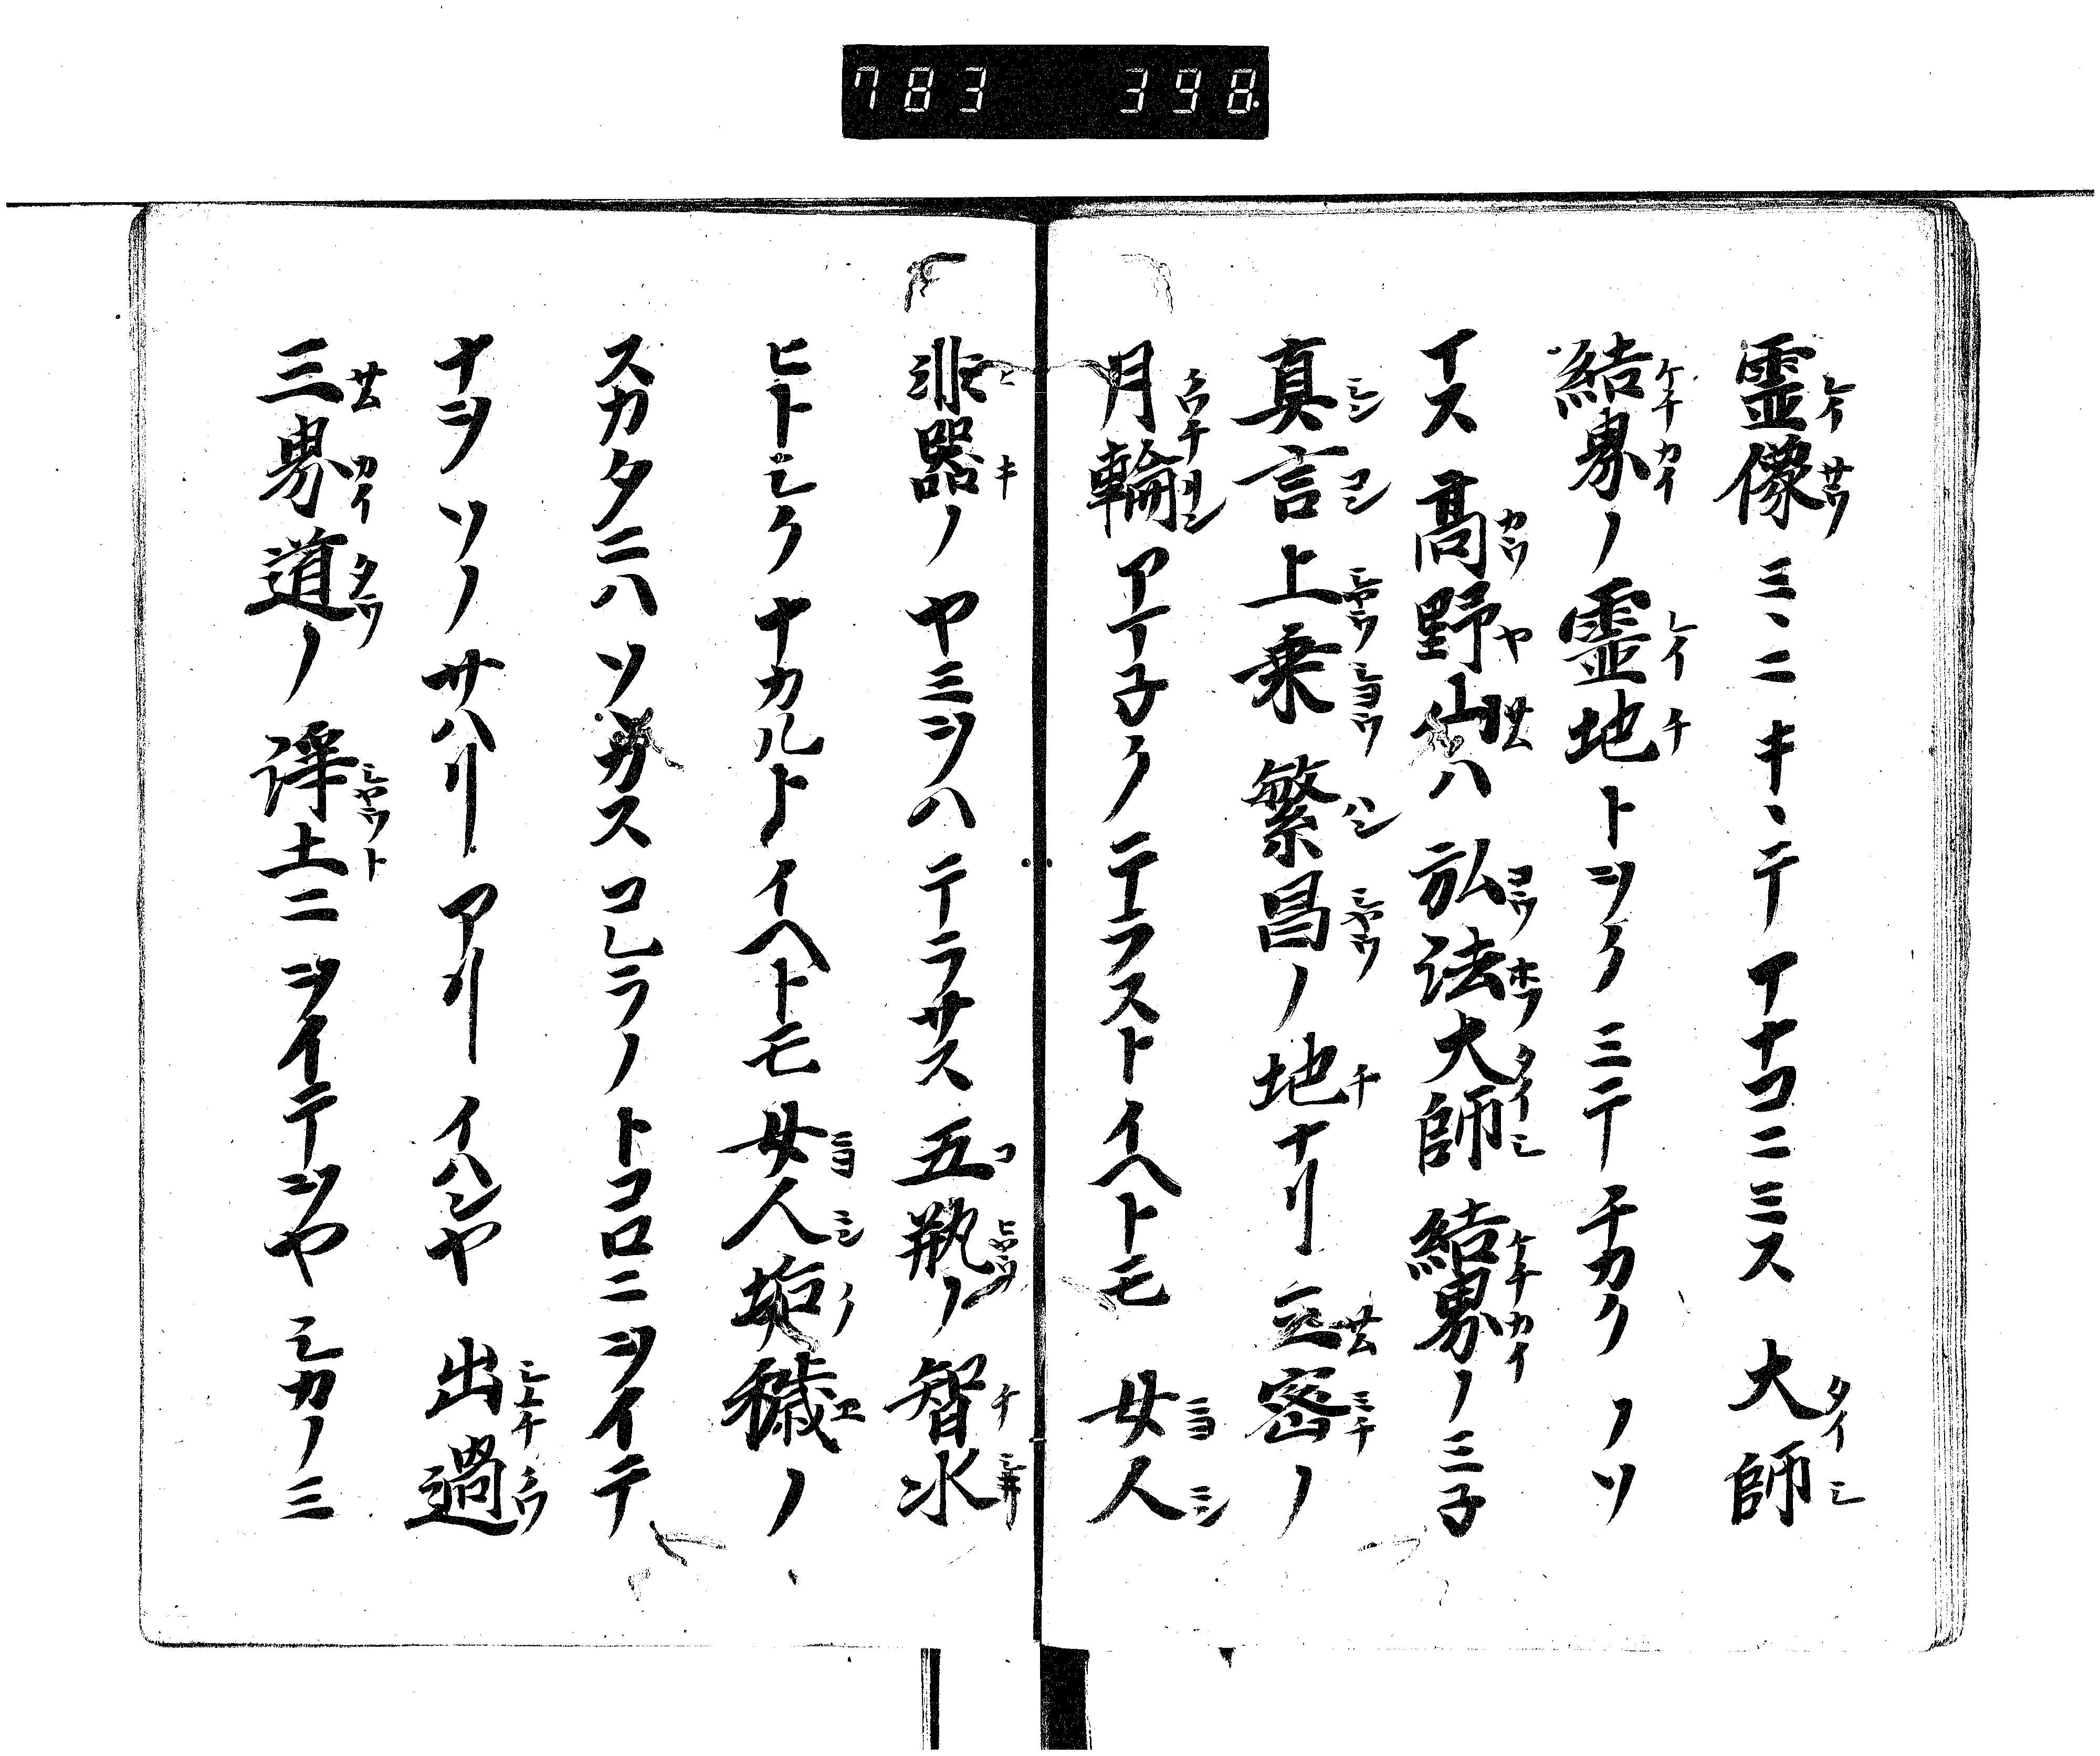 783 398
霊像ミヽニキヽテイナコニミス大師
結界ノ霊地トシクミテチカクノソ
イス高野山ハ弘法大師結界ノミ子
真言上乗繁昌ノ地ナリ三密ノ
月輪アマ子クテラストイヘトモ女人
非器ノヤミヲハテラサス五瓶ノ智水
ヒトシクナカルトイヘトモ女人垢穢ノ
スカタニハソヽカスコレラノトコロニヲイテ
ナヲソノサハリアリイハンヤ出過
三界道ノ浄土ニヲイテヲヤシカノミ